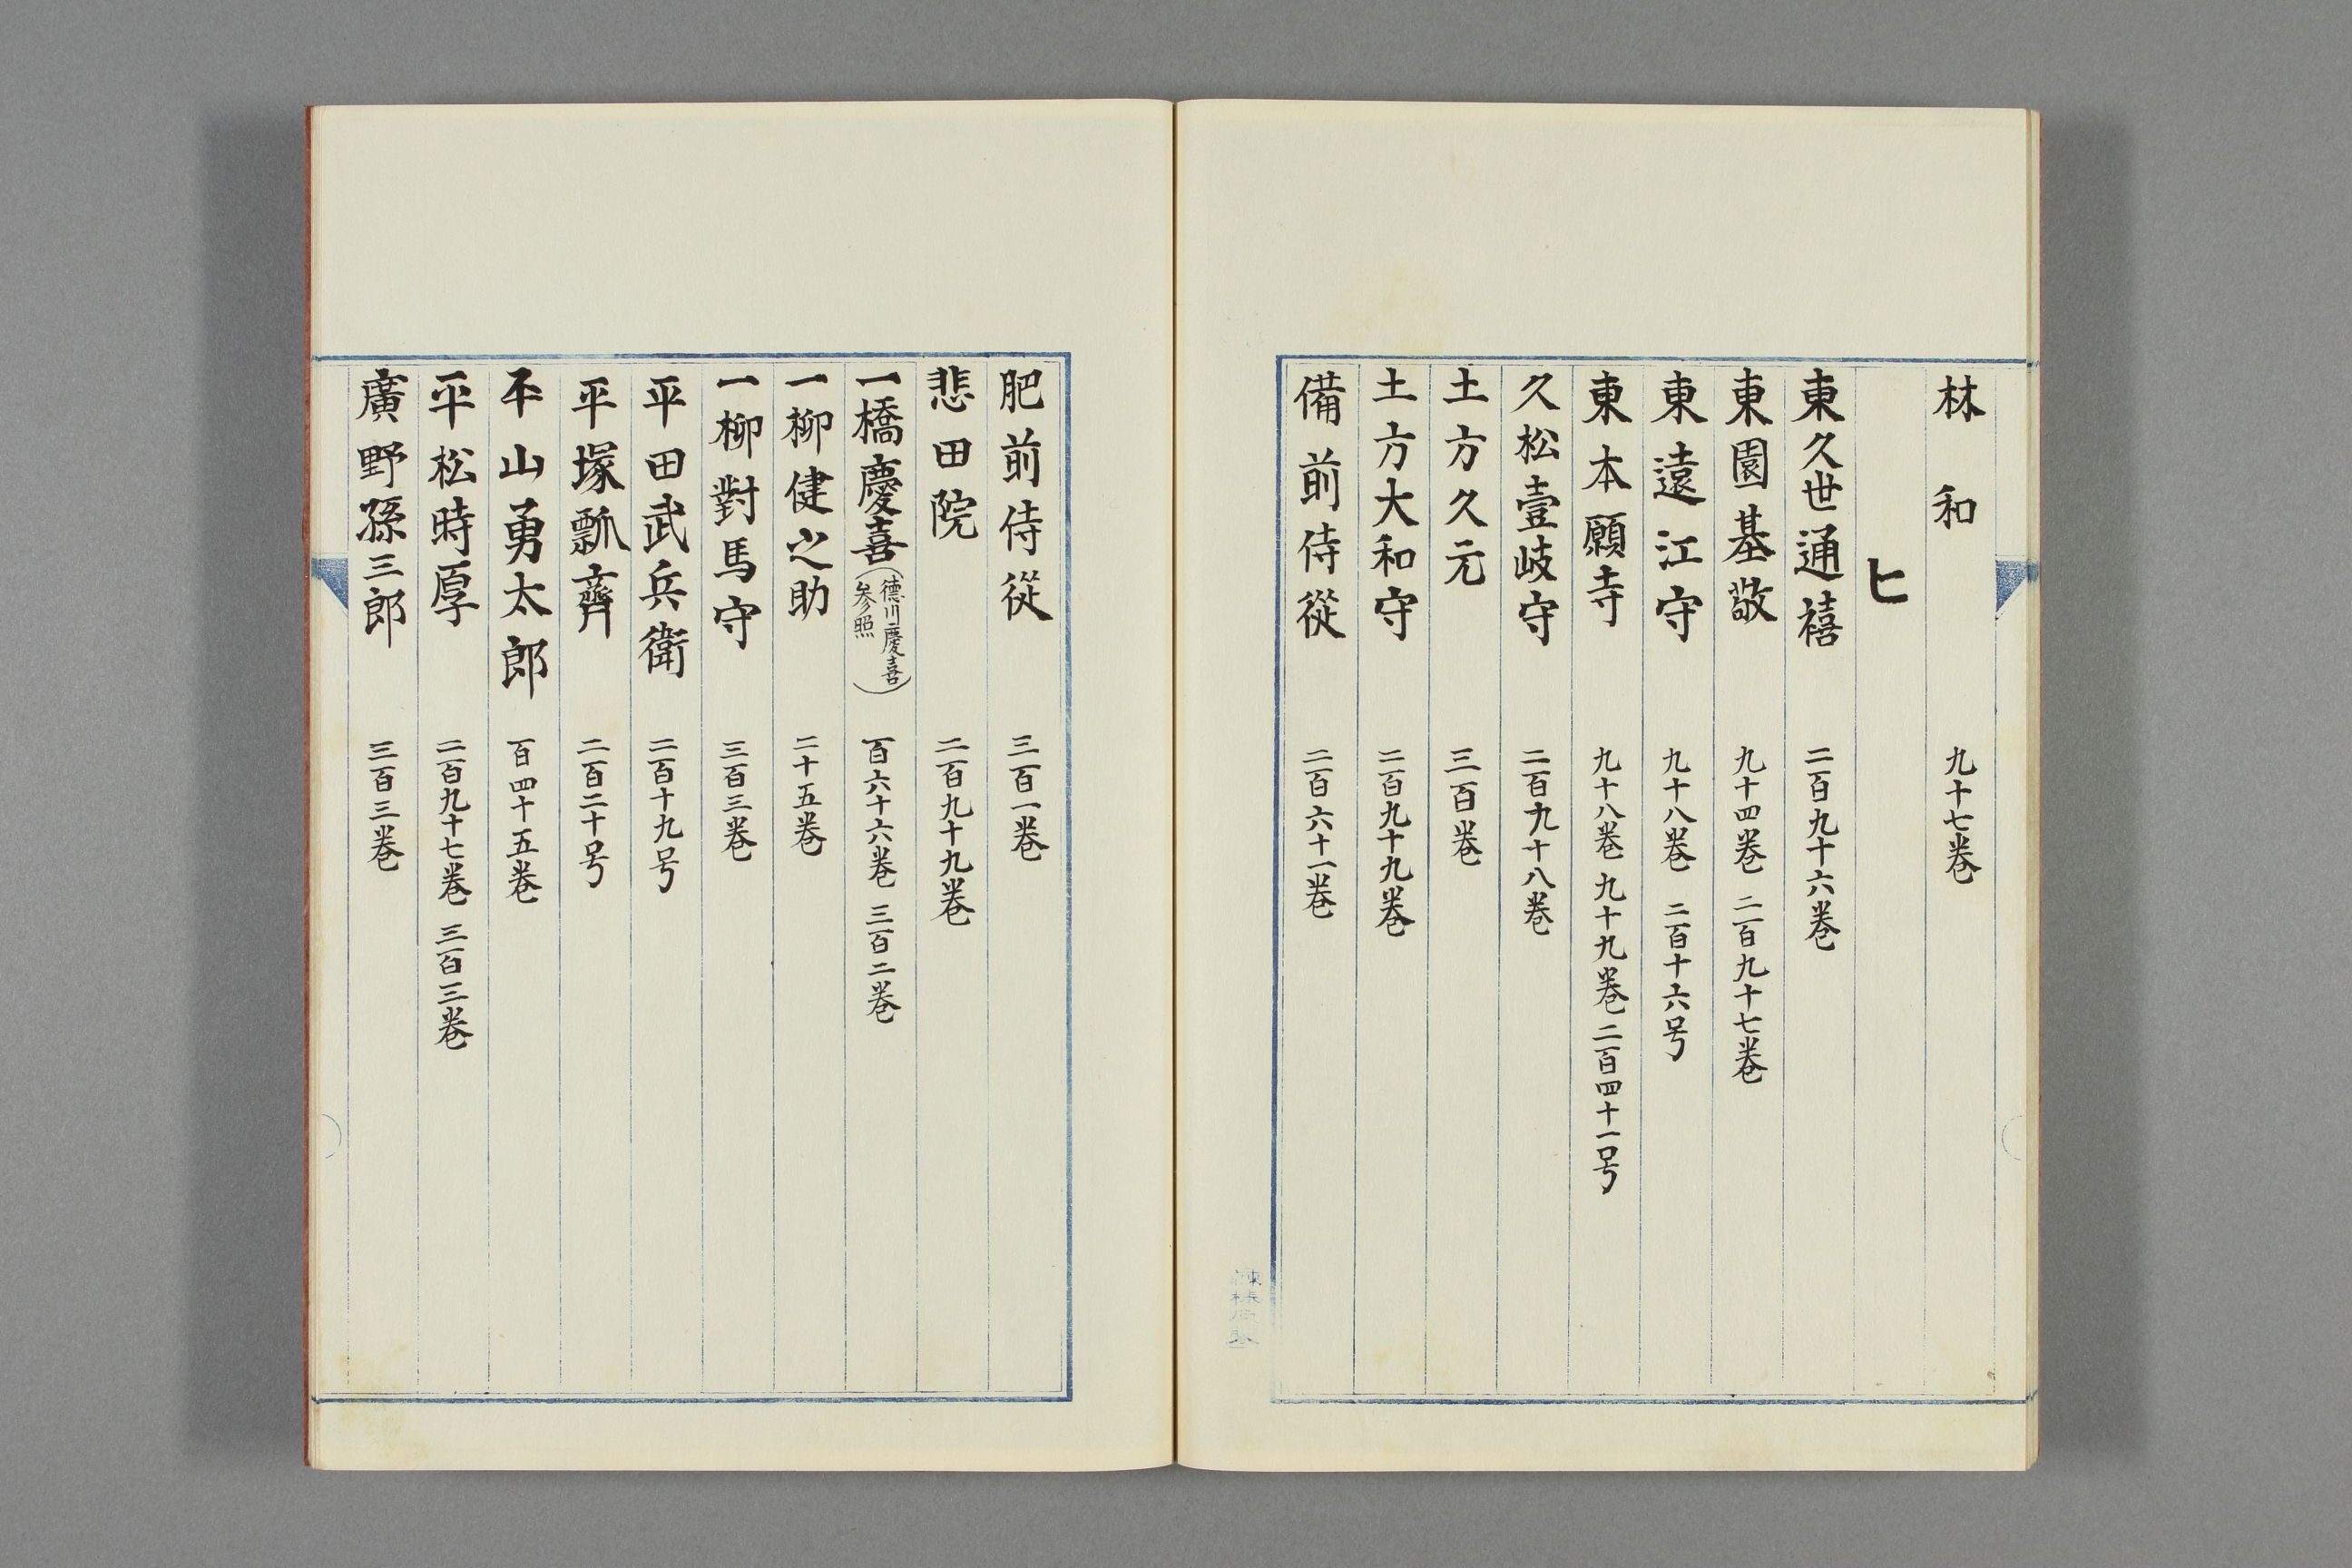 林和 九十七巻
ヒ
東久世通禧 二百九十六巻
東園基敬 九十四巻 二百九十七巻
東遠江守 九十八巻 二百十六号
東本願寺 九十八巻 九十九巻 二百四十一号
久松壹岐守 二百九十八巻
土方久元 三百巻
土方大和守 二百九十九巻
備前侍從 二百六十一巻
肥前侍從 三百一巻
悲田院 二百九十九巻
一橋慶喜(德川慶喜参照) 百六十六巻 三百二巻
一柳健之助 二十五巻
一柳對馬守 三百三巻
平田武兵衛 二百十九号
平塚瓢齊 二百二十号
平山勇太郎 百四十五巻
平松時厚 二百九十七巻 三百三巻
廣野孫三郎 三百三巻